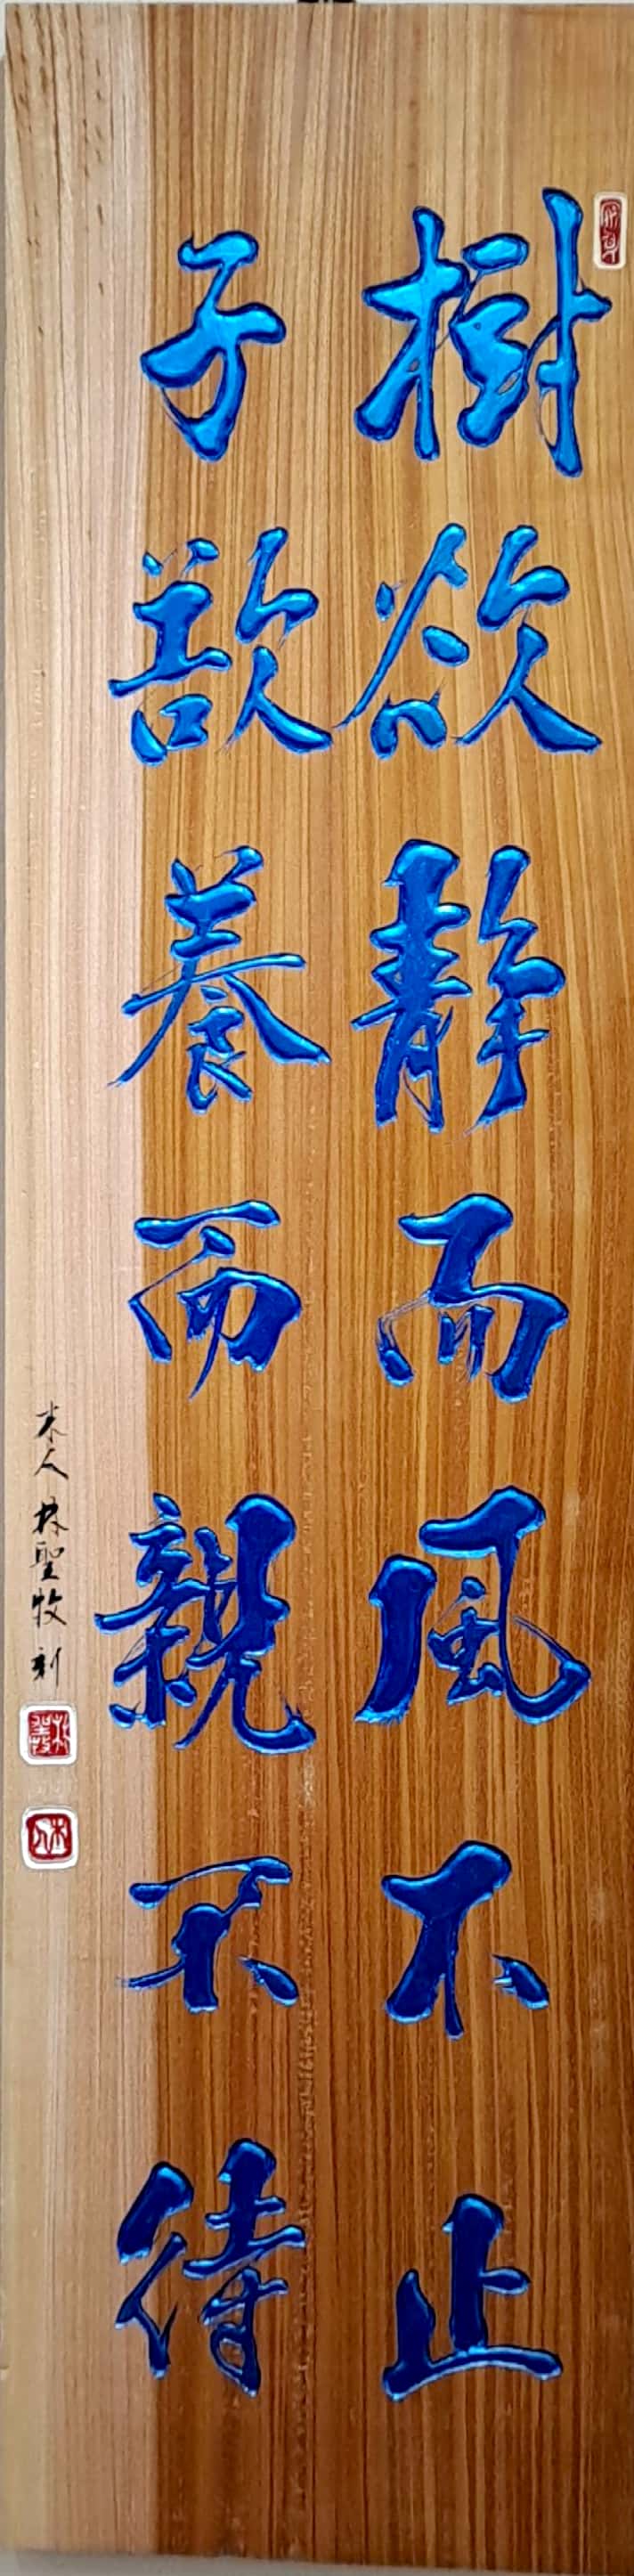 樹欲静而風不止
子欲養而親不待
木人 林聖牧 刻